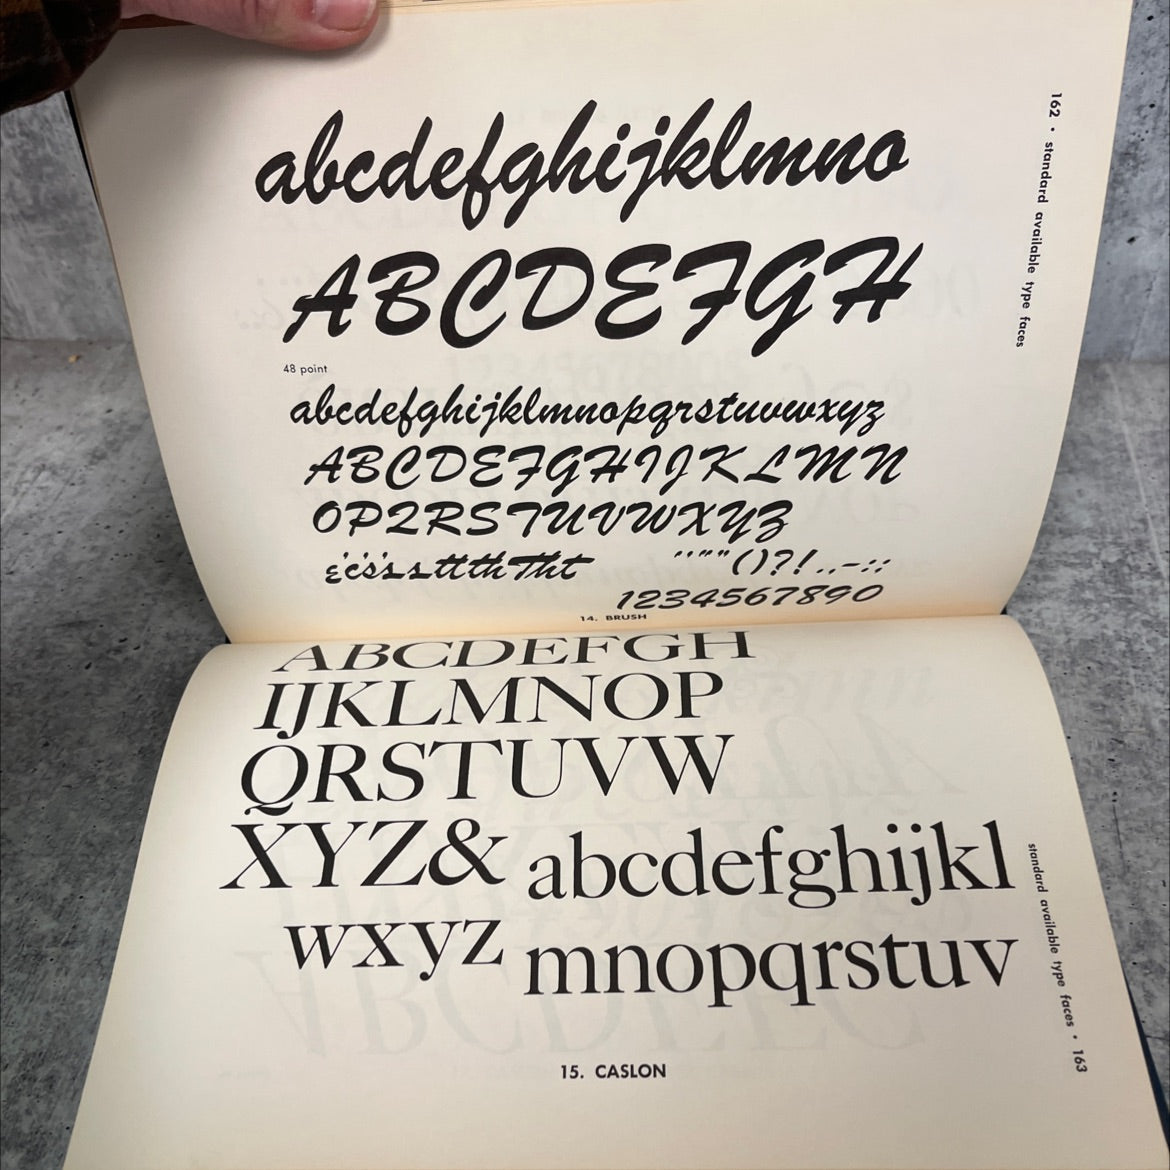 162 • standard available type faces
abcdefghijklmno
ABCDEFGH
48 point
abcdefghijklmnopqrstuvwxyz
ABCDEFGHIJKLMN
OPQRSTUVWXYZ
()?!..-:;
1234567890
14. BRUSH
ABCDEFGH
IJKLMNOP
QRSTUVW
XYZ& abcdefghijkl
wxyz mnopqrstuv
standard available type faces • 163
15. CASLON